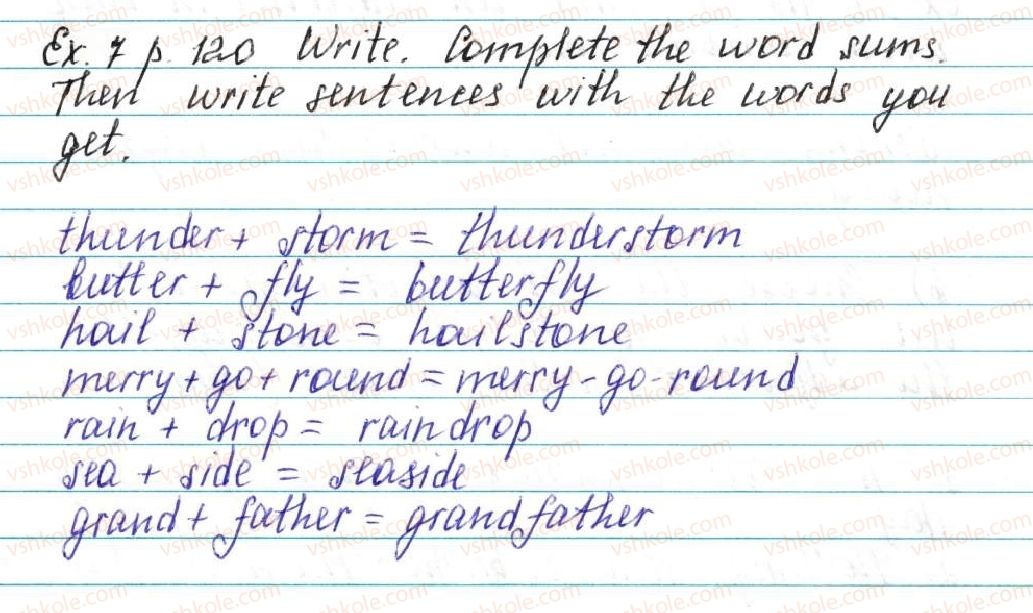 Ex. 7 p. 120 Write. Complete the word sums.
Then write sentences with the words you
get.
thunder + storm = thunderstorm
butter + fly = butterfly
hail + stone = hailstone
merry + go + round = merry-go-round
rain + drop = raindrop
sea + side = seaside
grand + father = grandfather
vshkole.com